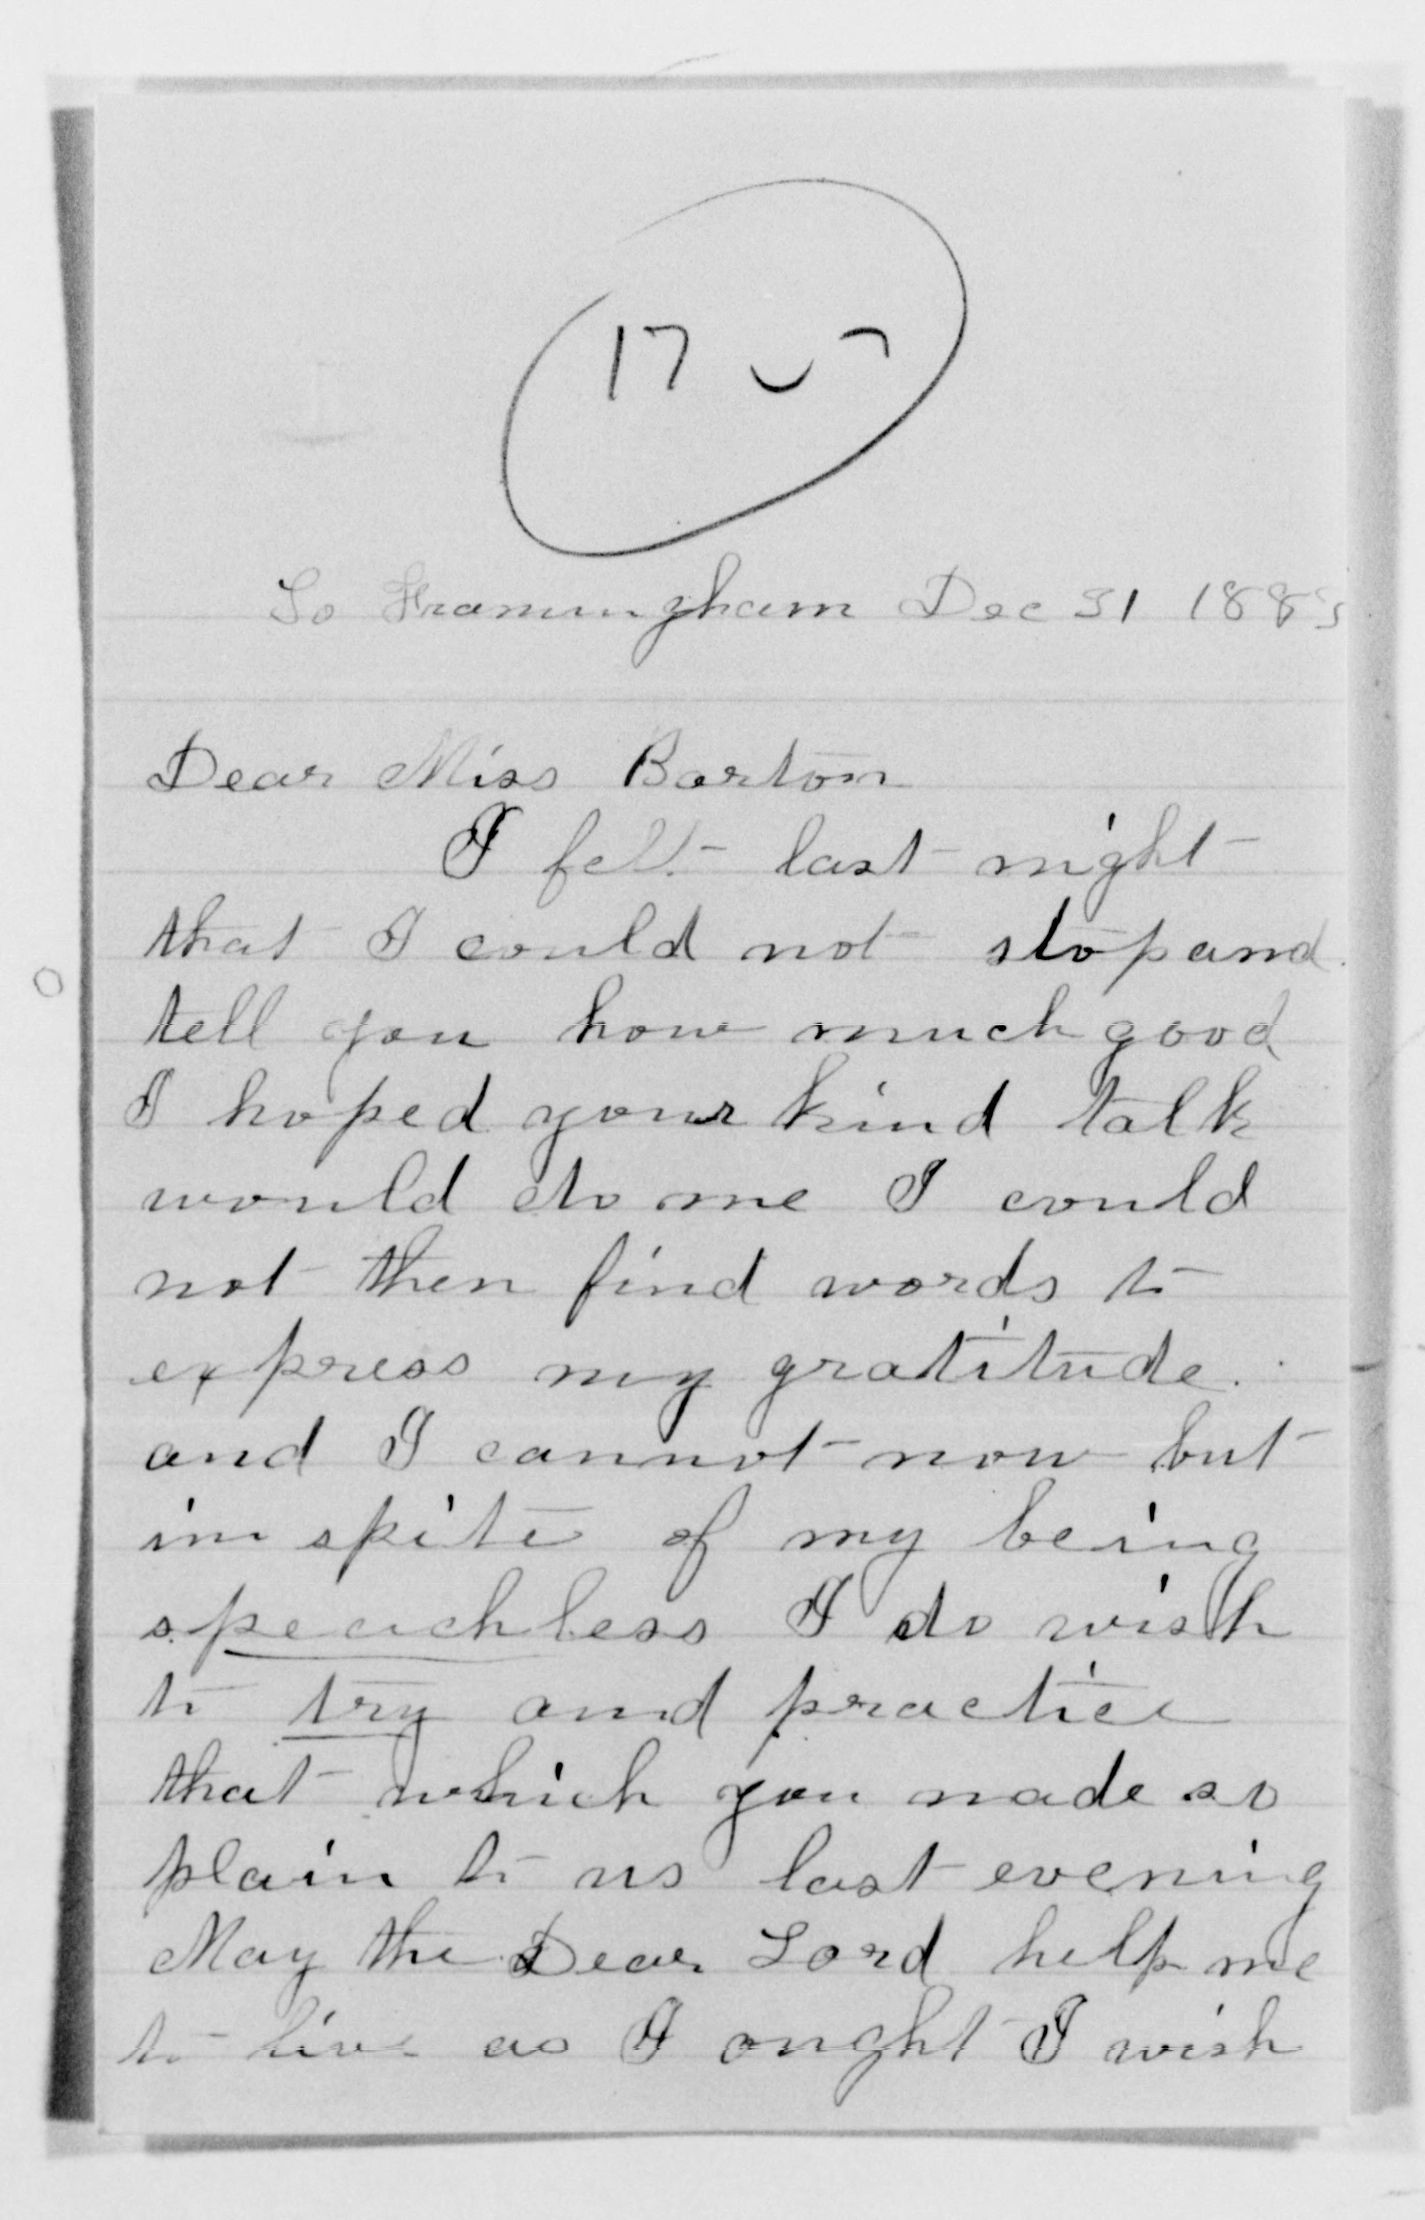 17
So Framingham Dec 31 1883
Dear Miss Barton
I felt last night
that I could not stop and
tell you how much good
I hoped your kind talk
would do me I could
not then find words to
express my gratitude.
and I cannot now but
in spite of my being
speachless I do wish
to try and practice
that which you made so
plain to us last evening
May the Dear Lord help me
to live as I ought I wish